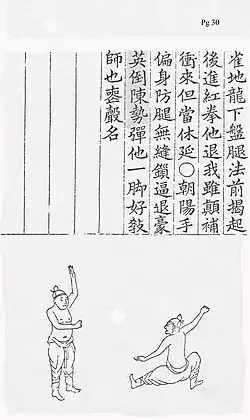 Pg 30
雀地龍下盤腿法前揭起
後進紅拳他退我雖顛補
衝來但當休延○朝陽手
偏身防腿無縫鎖逼退豪
英倒陳勢彈他一脚好教
師也喪聲名